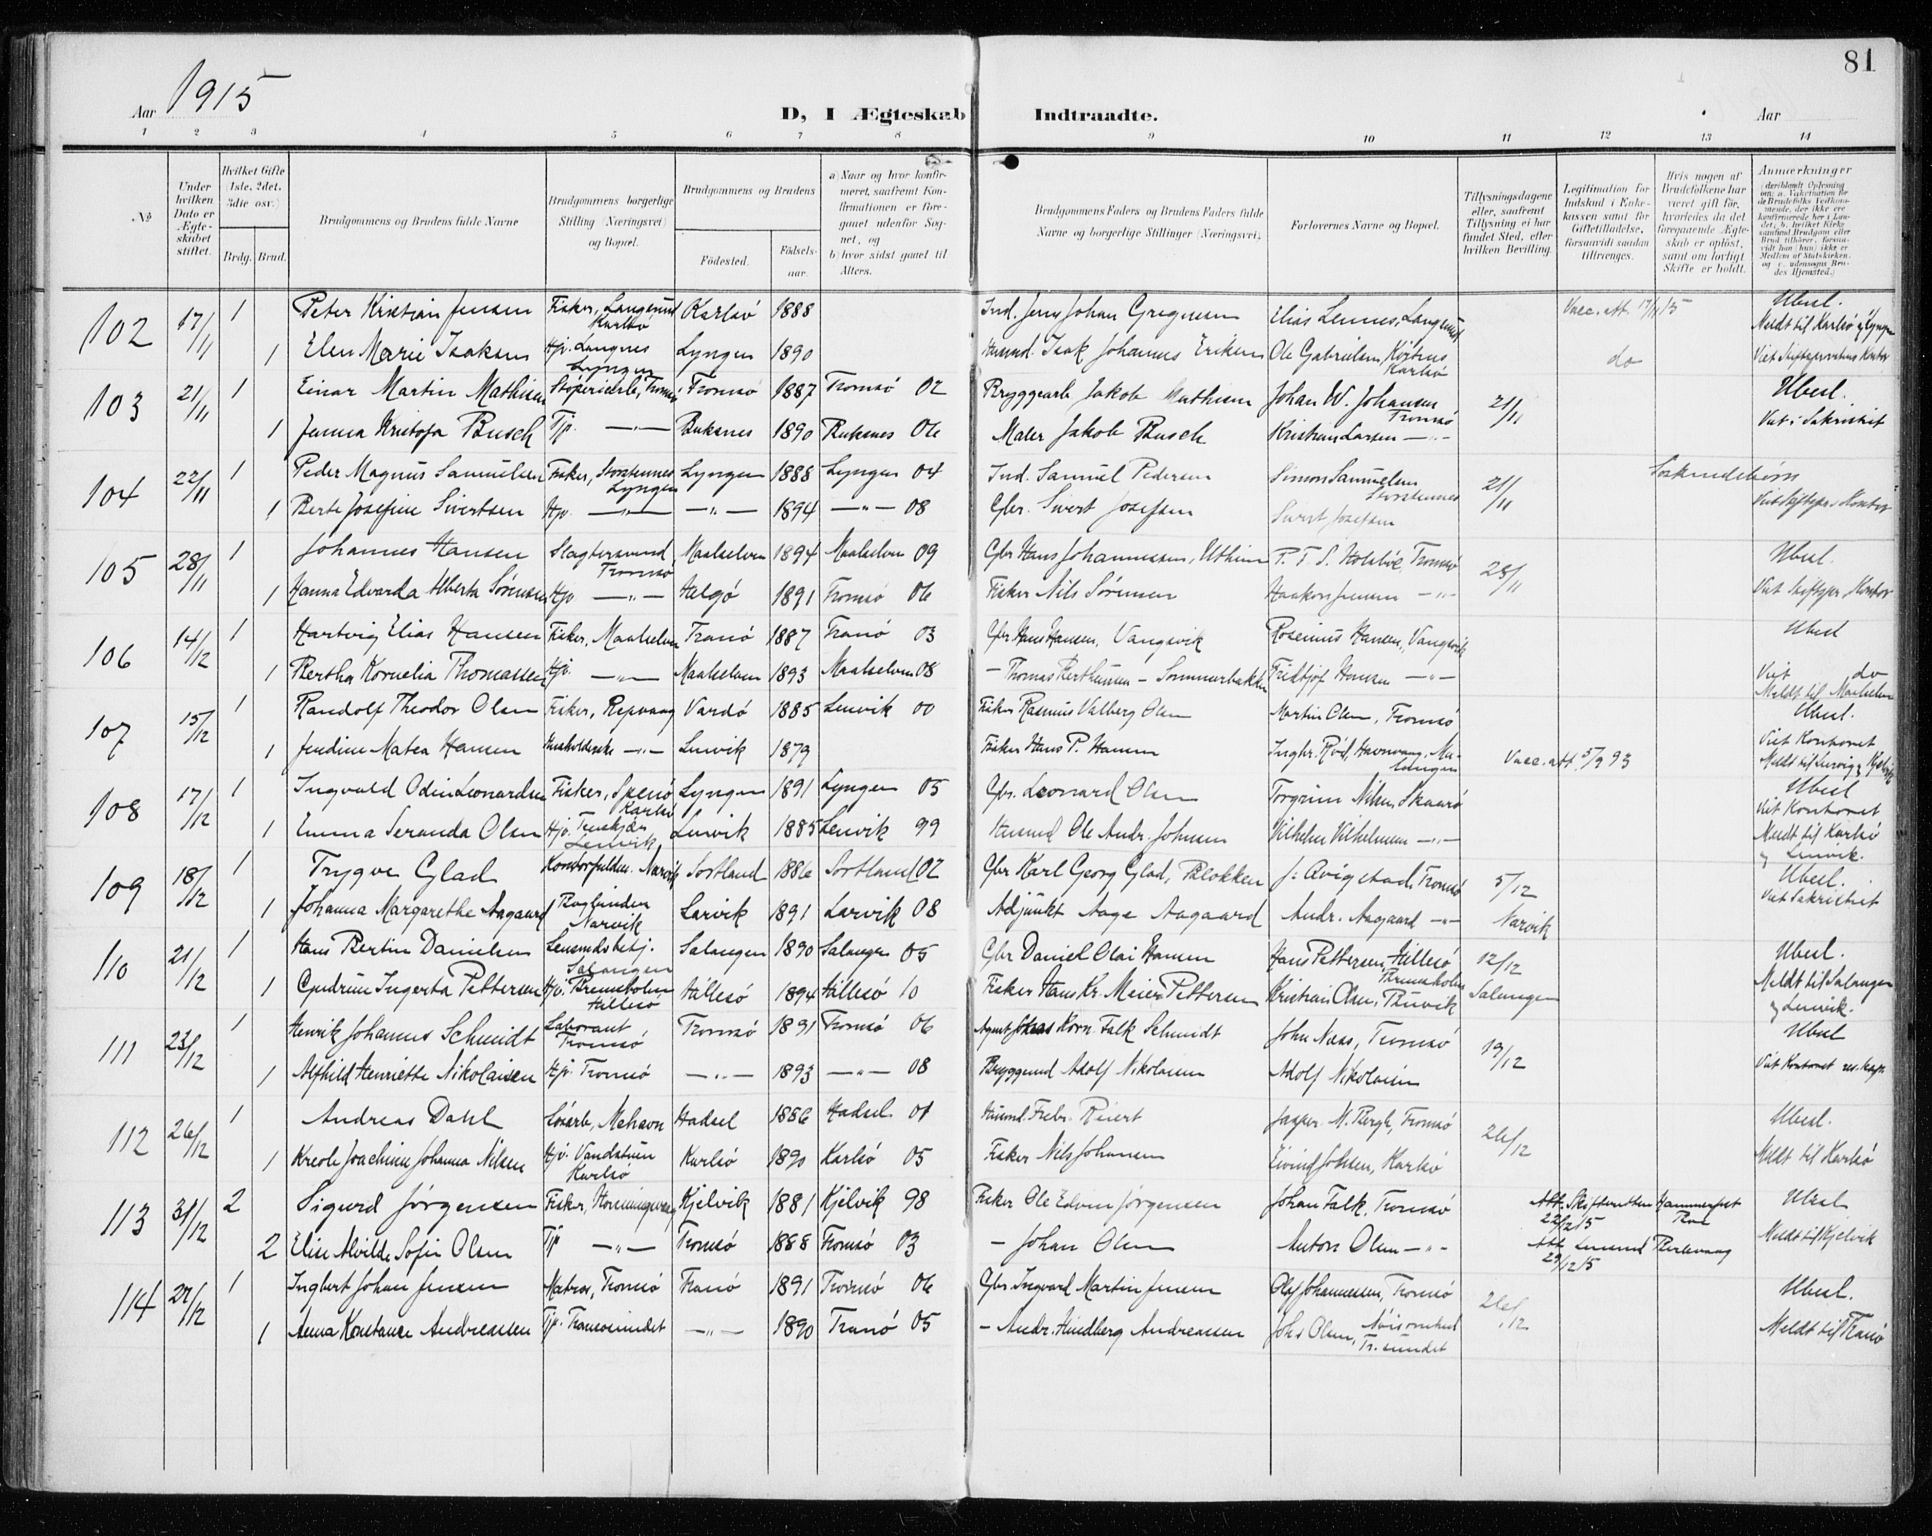 81
Aar 1915
D, I Ægteskab Indtraadte. Aar
1 2 3 4 5 6 7 8 9 10 11 12 13 14
No
Under hvilken Dato er Ægteskabet stiftet.
Hvilket Gifte (1ste, 2det, 3die osv.)
Brdg. Brud.
Brudgommens og Brudens fulde Navne
Brudgommens borgerlige Stilling (Næringsvei) og Bopæl.
Brudgommens og Brudens
Fødested. Fødselsaar.
a) Naar og hvor konfirmeret, saafremt Konfirmationen er foregaaet udenfor Sognet, og
b) hvor sidst gaaet til Alters.
Brudgommens Faders og Brudens Faders fulde Navne og borgerlige Stillinger (Næringsvei).
Forlovernes Navne og Bopæl.
Tillysningsdagene eller, saafremt Tillysning ei har fundet Sted, efter hvilken Bevilling.
Legitimation for Indskud i Enkekassen samt for Giftetilladelse, forsaavidt saadan tiltrænges.
Hvis nogen af Brudefolkene har været gift før, hvorledes da det foregaaende Ægteskab er opløst, samt om lovligt Skifte er holdt.
Anmærkninger
102 17/11 1 Peter Kristian Jensen Fisker, Langesund Karlsö Karlsö 1888 Ind. Jens Johan Gregusen Elias Lennes, Langesund Vacc. att. 17/11 15 Ubesl.
Meldt til Karlsö og Lyngen
1 Elen Marie Isaksen Hp. Langnes Lyngen Lyngen 1890 Husmd. Isak Johannes Eriksen Ole Gabrielsen, Karlsö do Viet Stiftsprovstens Kontor
103 21/11 1 Einar Martin Mathisen Støperiarb., Tromsö Tromsö 1887 Tromsö 02 Bryggearb. Jakob Mathisen Johan W. Johansen Tromsö 21/11 Ubesl.
1 Jenna Kristofa Busch Tjp. —„— Buksnes 1890 Buksnes 06 Maler Jakob Busch Kristian Larsen —„— Viet i Sakristiet
104 22/11 1 Peder Magnus Samuelsen Fisker, Storstennes Lyngen Lyngen 1888 Lyngen 04 Ind. Samuel Pedersen Simon Samuelsen Storstennes 21/11 Søskendebørn
1 Berte Josefine Sivertsen Hp. —„— —„— 1894 —„— 08 Gbr. Sivert Josefsen Sivert Josefsen Viet Stiftspr. Kontor
105 28/11 1 Johannes Hansen Slagtersvend Tromsö Maalselven 1894 Maalselven 09 Gbr. Hans Johannessen, P. F. S. Holsböe, Tromsö 28/11 Ubesl.
1 Hanna Edvarda Alberta Sörensen Hp —„— Helgö 1891 Tromsö 06 Fisker Nils Sörensen Haakon Jensen —„— Viet Stiftspr. Kontor
106 14/12 1 Hartvig Elias Hansen Fisker, Maalselven Tranö 1887 Tranö 03 Gbr. Hans Hansen, Vangsvik Rosenius Hansen, Vangsvik Ubesl
1 Bertha Kornelia Thomassen Hp. —„— Maalselven 1893 Maalselven 08 — Thomas Berthinsen — Sommerbakken Fridtjof Hansen —„— Viet do
Meldt til Maalselven
107 15/12 1 Randolf Theodor Olsen Fisker, Repvaag Vardö 1885 Lenvik 00 Fisker Rasmus Valberg Olsen Martin Olsen, Tromsö Ubesl.
1 Jendine Matea Hansen Husholderske —„— Lenvik 1879 Fisker Hans P. Hansen Ingbr. Vacc. att. 5/9 93 Viet Kontoret
108 17/12 1 Ingvald Odin Leonardsen Fisker, Spenö Karlsö Lyngen 1891 Lyngen 05 Gbr. Leonard Olsen Torgrim Nilsen Skaarö Ubesl
Viet Kontoret
1 Emma Seranda Olsen Hp. Lenvik Lenvik 1885 Lenvik 99 Husmd Ole Andr. Johnsen Vilhelm Vilhelmsen —„— Meldt til Karlsö
og Lenvik.
109 18/12 1 Trygve Glad Kontorfuldm. Narvik Sortland 1886 Sortland 02 Gbr Karl Georg Glad, Blokken J. Qvigstad, Tromsö 5/12 Ubesl.
1 Johanna Margarethe Aagaard Narvik Larvik 1891 Larvik 08 Adjunkt Aage Aagaard Andr. Aagaard —„— Narvik Viet Sakristiet
110 21/12 1 Hans Bertin Danielsen Lensmdsbetj. Salangen Salangen 1890 Salangen 05 Gbr Daniel Olai Hansen Hans Pettersen, Hillesö 12/12 Ubesl.
1 Gudrun Ingerta Pettersen Hp. Bremsholm Hillesö Hillesö 1894 Hillesö 10 Fisker Hans Kr. Meier Pettersen Kristian Olsen, Salangen Meldt til Salangen
og Lenvik.
111 23/12 1 Henrik Johannes Schmidt Laborant Tromsö Tromsö 1891 Tromsö 06 Agent Johans Korn. Falk Schmidt John Næss, Tromsö 19/12 Ubesl
1 Alfhild Henriette Nikolaisen Hp. Tromsö —„— 1893 —„— 08 Bryggemd Adolf Nikolaisen Adolf Nikolaisen Viet Kontoret res. kap.
112 26/12 1 Andreas Dahl Løsarb., Mehavn Hadsel 1886 Hadsel 01 Husmd. Fredr. Reiert Jasper M. Bergh, Tromsö 26/12 Ubesl.
1 Kreole Joachime Johanna Nilsen Hp. Vandstuen Karlsö Karlsö 1890 Karlsö 05 Fisker Nils Johansen Eivind Johsen, Karlsö Meldt til Karlsö
113 31/12 2 Sigurd Jørgensen Fisker, Honningsvaag Kjelvik 1881 Kjelvik 98 Fisker Ole Edvin Jørgensen Johan Falk, Tromsö Att. Skifteretten Hammerfest 22/12 15 Ubesl
2 Elise Alvilde Sofie Olsen Tjp —„— Tromsö 1888 Tromsö 03 — Johan Olsen Anton Olsen —„— Att. Lensmd Berlevaag 29/12 15 Meldt til Kjelvik
114 27/12 1 Ingbert Johan Jensen Matros, Tromsö Tranö 1891 Tromsö 06 Gbr. Ingvard Martin Jensen Olaf Johannessen, Tromsö 26/12 Ubesl.
1 Anna Konstanse Andreassen Tjp. Tranosundet —„— 1890 Tranö 05 — Andr. Hindberg Andreassen Johs Olsen, Tr.sundet Meldt til Tranö